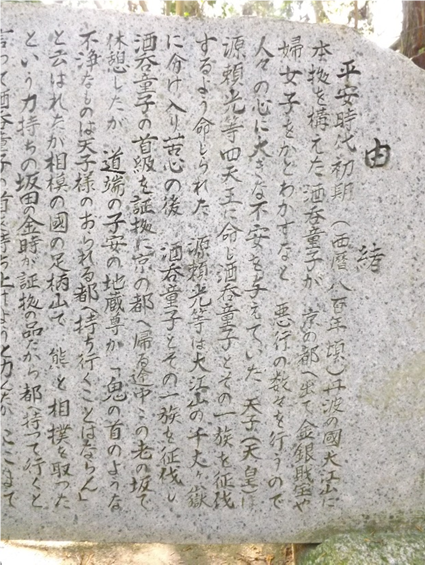 由緒
平安時代初期（西暦八百年頃）丹波の國大江山に
本拠を構えた酒呑童子が 京の都へ出て金銀財宝や
婦女子をかどわかすなど 悪行の数々を行うので
人々の心に大きな不安を与えていた 天子（天皇）は
源頼光等四天王に命じ酒呑童子とその一族を征伐
するよう命じられた 源頼光等は大江山の千丈ヶ嶽
に分け入り苦心の後 酒呑童子とその一族を征伐し
酒呑童子の首級を証拠に京の都へ帰る途中この老の坂で
休憩したが 道端の子安の地蔵尊が「鬼の首のような
不浄なものは天子様のおられる都へ持ち行くことはならん」
と云はれたが相模の國の足柄山で 熊と相撲を取った
という力持ちの坂田の金時が証拠の品だから都へ持って行くと
言って酒呑童子の首を持ち上げようと力んだが ここまで